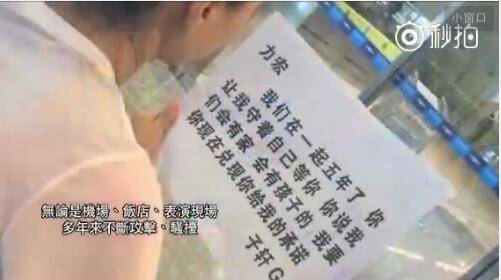 小窗口
秒拍
力宏
我们在一起五年了 你
让我守着自己等你 你说我
们会有家 会有孩子的 我要
你现在兑现你给我的承诺
子轩 G
無論是機場、飯店、表演現場
多年來不斷攻擊、騷擾